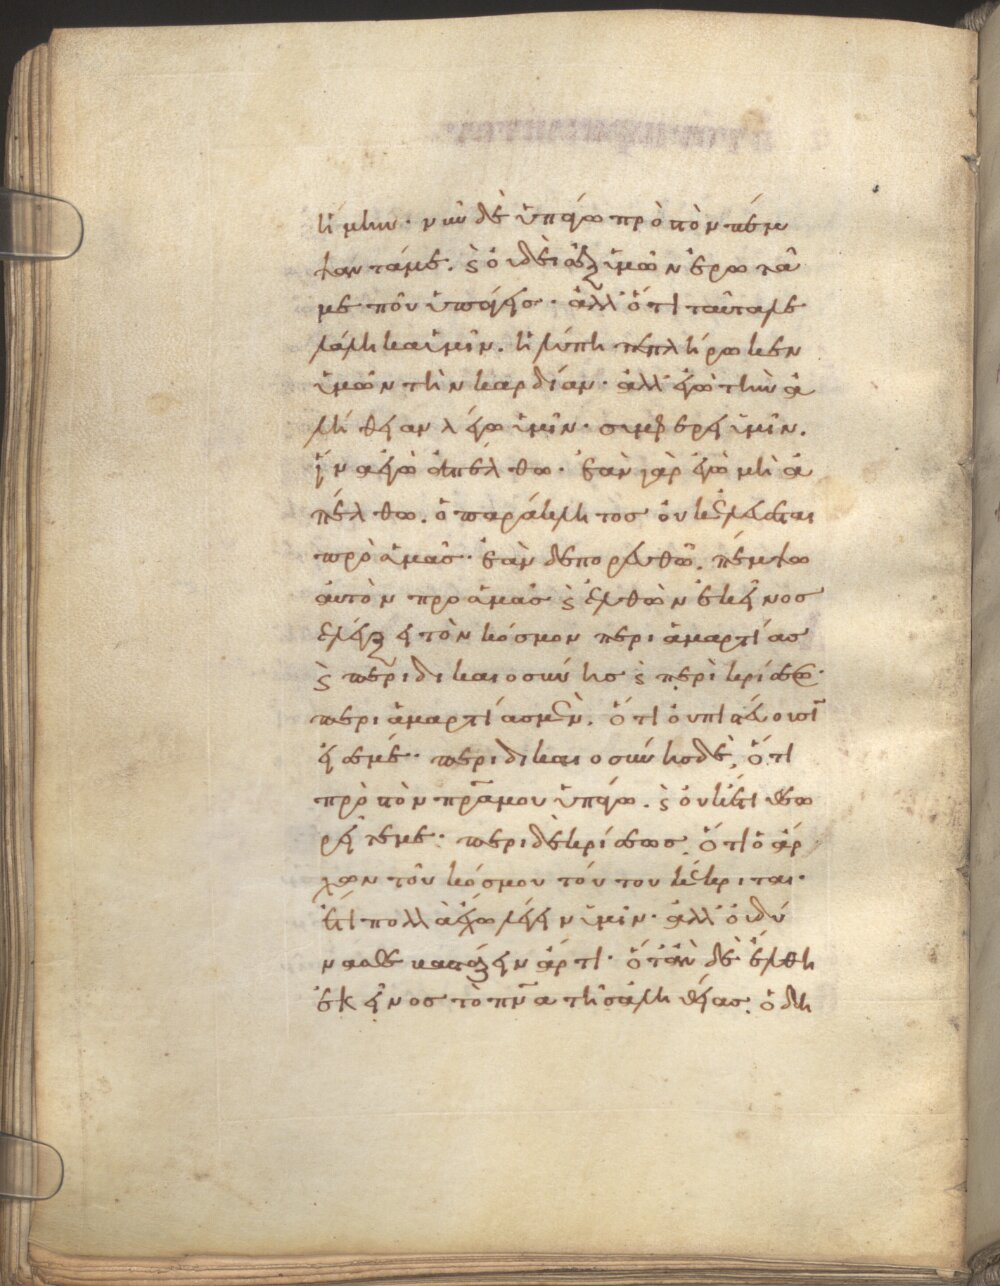 ἤμην· νῦν δὲ ὑπάγω πρὸ τὸν πέμ
ψαντά με. ϗ οὐδεὶς ἐξ ὑμῶν ἐρωτᾶ
με ποῦ ὑπάγεις· ἀλλ ὅτι ταῦτα λε
λάληκα ὑμῖν. ἡ λύπη πεπλήρωκεν
ὑμῶν τὴν καρδίαν· ἀλλ ἐγὼ τὴν ἀ
λήθειαν λέγω ὑμῖν· συμφέρει ὑμῖν.
ἵνα ἐγὼ ἀπέλθω· ἐὰν γὰρ ἐγὼ μὴ ἀ
πέλθω. ὁ παράκλητος οὐκ ἐλεύσεται
πρὸ ὑμᾶς· ἐὰν δὲ πορευθῶ. πέμψω
αὐτὸν προ ὑμᾶς ϗ ἐλθὼν ἐκεῖνος
ἐλέγξει τὸν κόσμον περι ἁμαρτίας
ϗ περι δικαιοσύνης ϗ περὶ κρίσεως·
περι ἁμαρτίας μὲν. ὅτι οὐ πιστεύουσι
εἰς ἐμέ· περι δικαιοσύνης δὲ, ὅτι
πρὸ τὸν πρα μου ὑπάγω. ϗ οὐκέτι θεω
ρεῖτε με· περι δὲ κρίσεως. ὅτι ὁ ἄρ
χων τοῦ κόσμου τούτου κέκριται·
ἔτι πολλὰ ἔχω λέγειν ὑμῖν· ἀλλ οὐ δύ
νασθε βαστάζειν ἄρτι· ὅταν δὲ ἔλθη
ἐκεῖνος τὸ πνα τῆς ἀληθείας. ὁδη